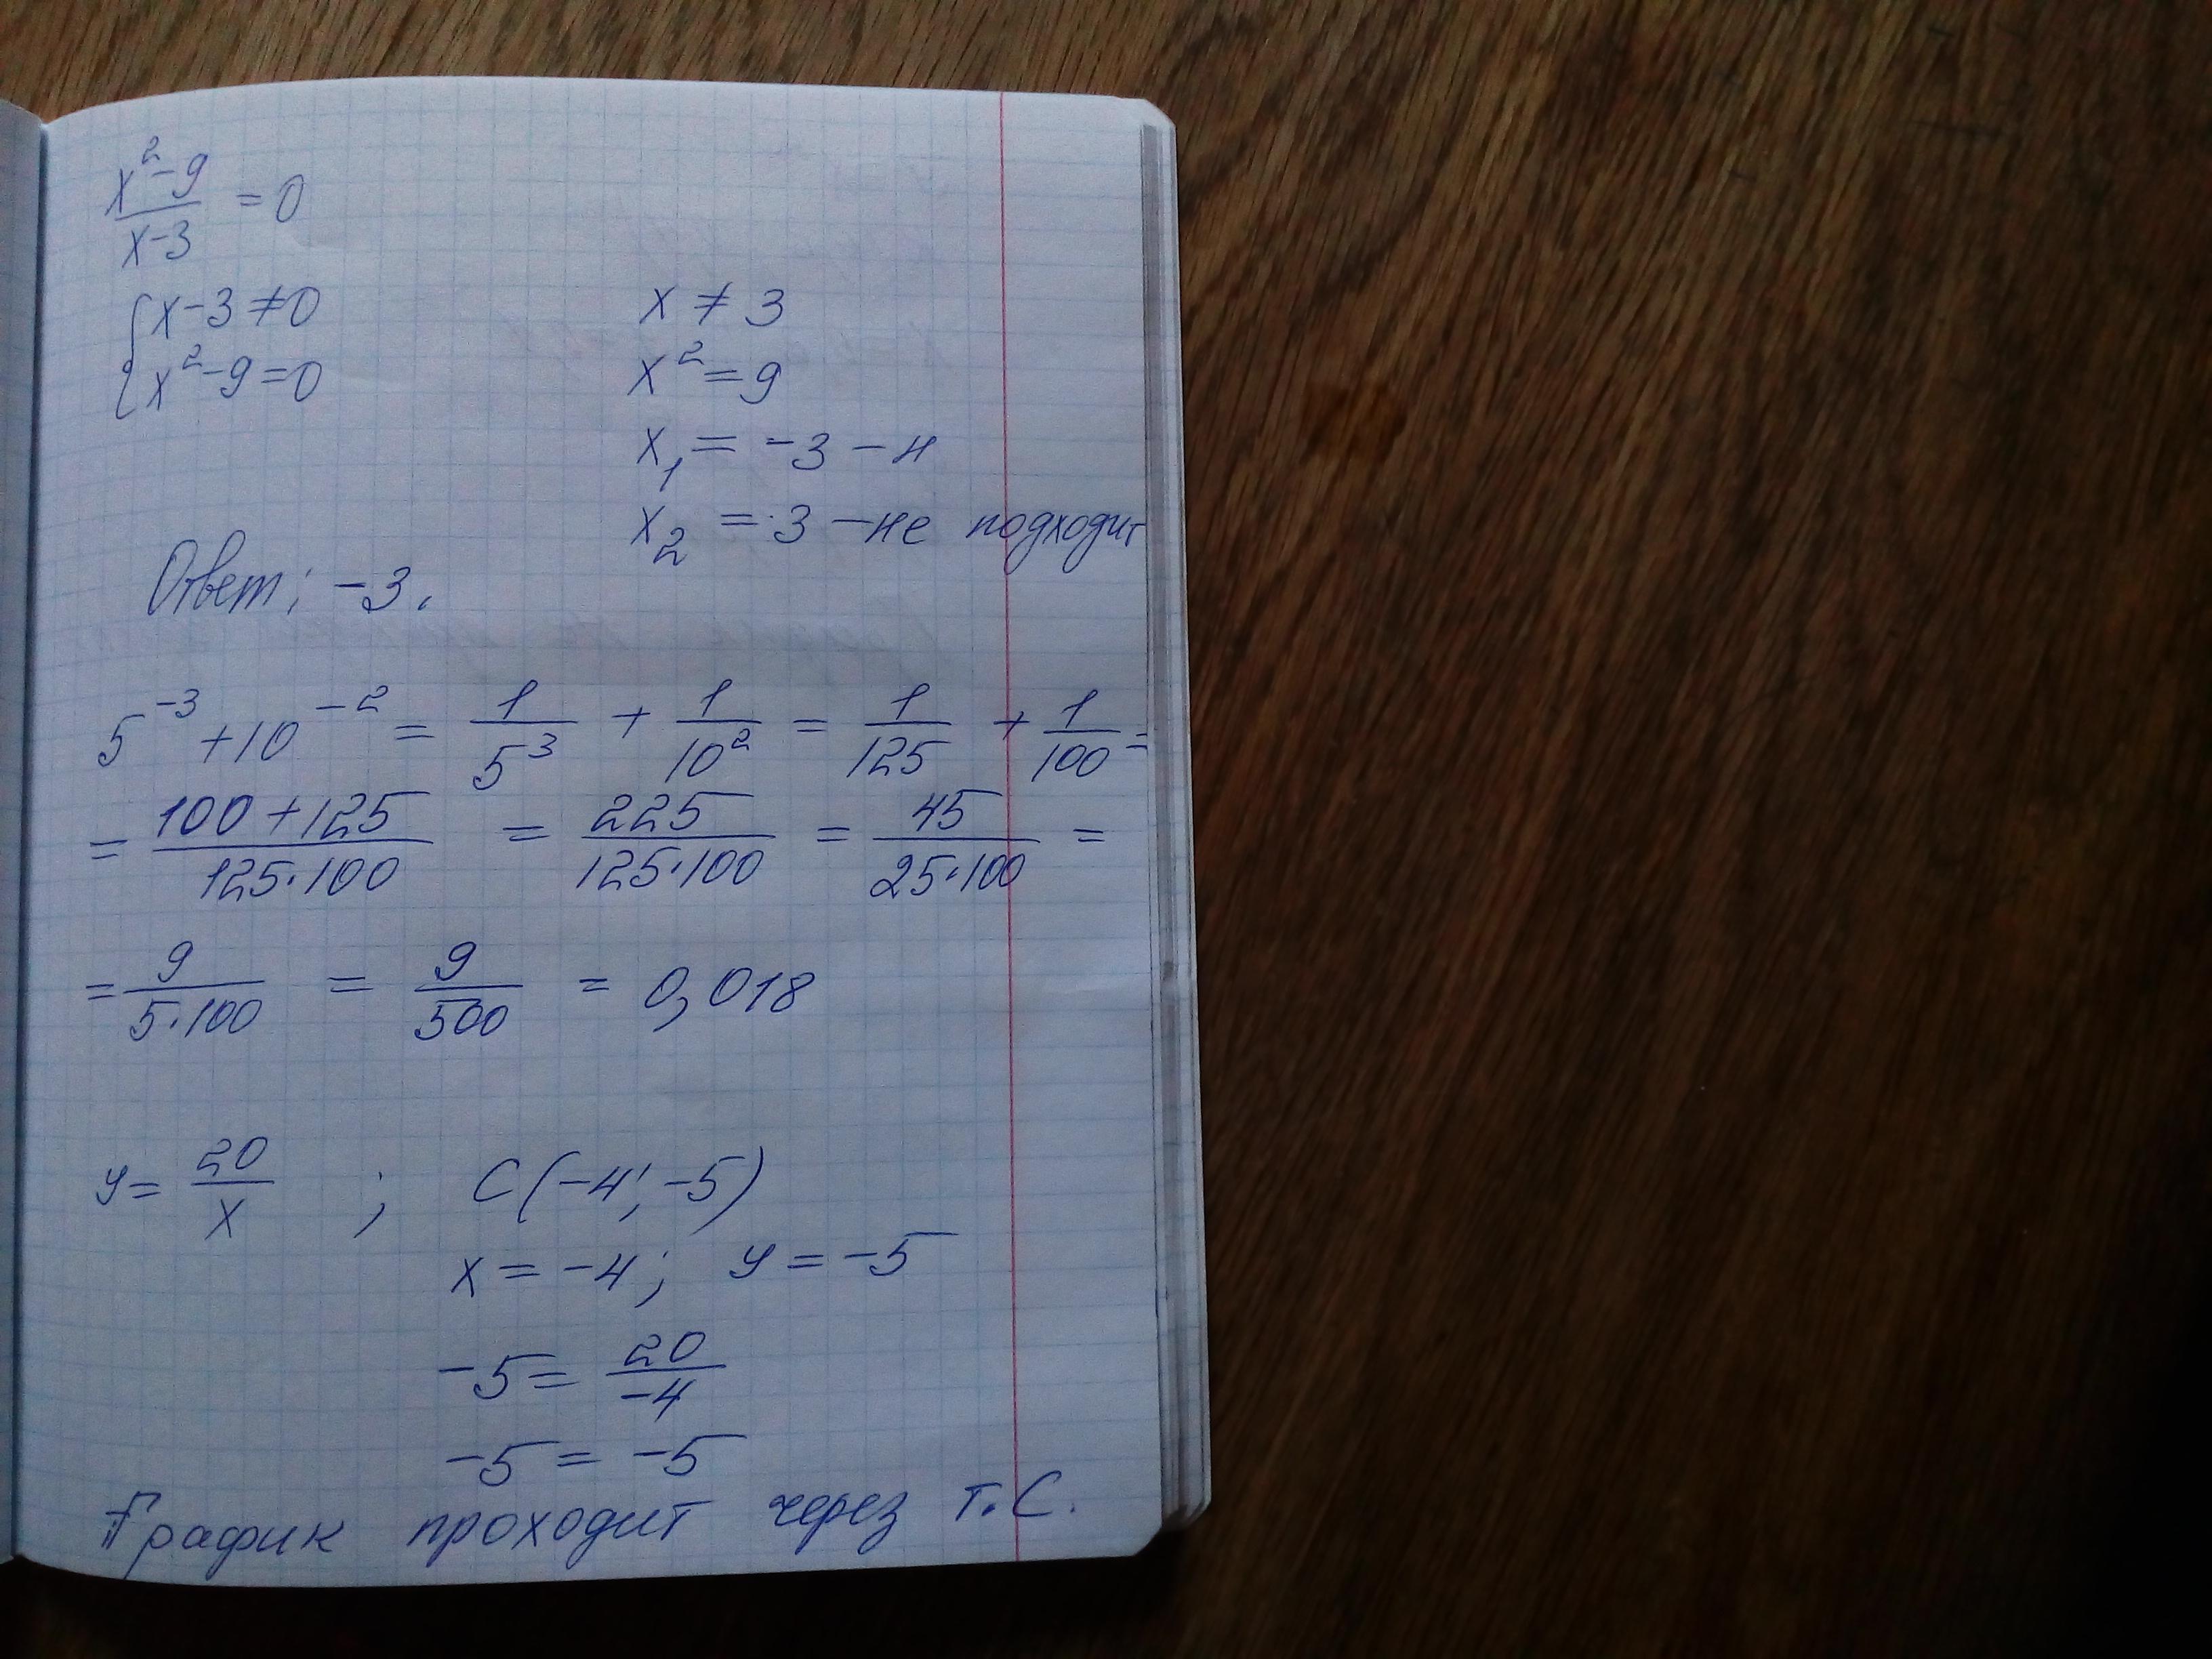 x²-9/x-3 = 0
{x-3≠0 x≠3
x²-9=0 x²=9
x₁ = -3 - н
x₂ = 3 - не подходит
Ответ: -3.
5⁻³+10⁻² = 1/5³ + 1/10² = 1/125 + 1/100 =
= 100+125/125·100 = 225/125·100 = 45/25·100 =
= 9/5·100 = 9/500 = 0,018
y= 20/x ; C(-4;-5)
x=-4; y=-5
-5= 20/-4
-5= -5
График проходит через т.С.